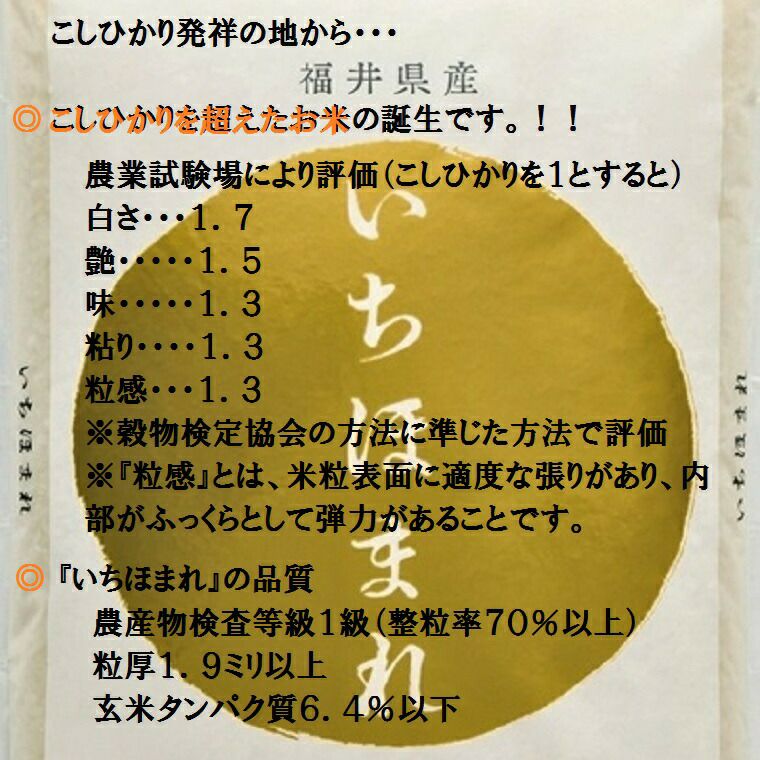 こしひかり発祥の地から・・・
福井県産
◎こしひかりを超えたお米の誕生です。！！
農業試験場により評価（こしひかりを１とすると）
白さ・・・１．７
艶・・・・・１．５
味・・・・・１．３
粘り・・・・１．３
粒感・・・１．３
※穀物検定協会の方法に準じた方法で評価
※『粒感』とは、米粒表面に適度な張りがあり、内
部がふっくらとして弾力があることです。
◎『いちほまれ』の品質
農産物検査等級１級（整粒率７０％以上）
粒厚１．９ミリ以上
玄米タンパク質６．４％以下
いちほまれ
いちほまれ
いちほまれ